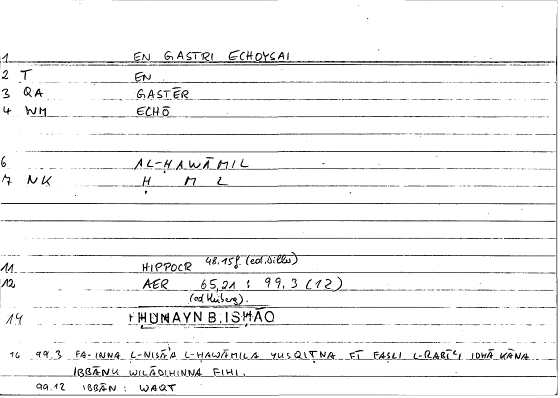 1 EN GASTRI ECHOYSAI
2 T EN
3 QA GASTĒR
4 WM ECHŌ
6 AL-ḤAWĀMIL
7 NK Ḥ M L
11 HIPPOCR 48.15f. (ed. Diller)
12 AER 65,21 : 99,3 (12)
(ed. Heiberg).
14 ḤUNAYN B. ISḤĀQ
16 99.3 FA-INNA L-NISĀʾA L-ḤAWĀMILA YUSQIṬNA FĪ FAṢLI L-RABĪʿI IDHĀ KĀNA
IBBĀNU WILĀDIHINNA FIHI.
99.12 IBBĀN : WAQT